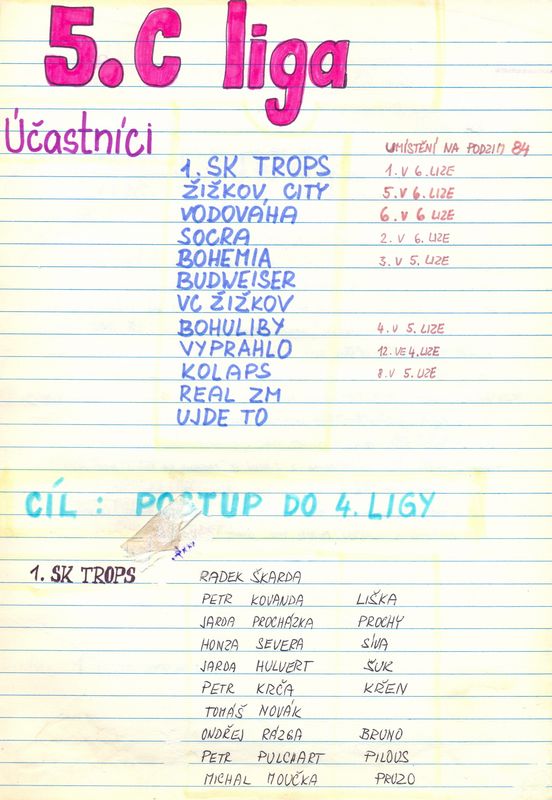 5.C liga
Účastníci
UMÍSTĚNÍ NA PODZIM 84
1. SK TROPS 1. V 6. LIZE
ŽIŽKOV CITY 5. V 6. LIZE
VODOVÁHA 6. V 6 LIZE
SOCRA 2. V 6. LIZE
BOHEMIA 3. V 5. LIZE
BUDWEISER
VC ŽIŽKOV
BOHULIBY 4. V 5. LIZE
VYPRAHLO 12. VE 4. LIZE
KOLAPS 8. V 5. LIZE
REAL ZM
UJDE TO
CÍL : POSTUP DO 4. LIGY
1. SK TROPS RADEK ŠKARDA
PETR KOVANDA LIŠKA
JARDA PROCHÁZKA PROCHY
HONZA SEVERA SÍVA
JARDA HULVERT ŠUK
PETR KRČA KŘEN
TOMÁŠ NOVÁK
ONDŘEJ RÁZGA BRUNO
PETR PULCHART PILOUS
MICHAL MOUČKA PRUZO